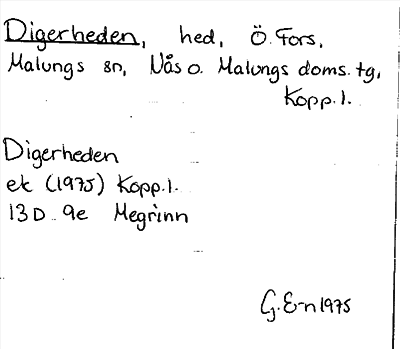 Digerheden, hed, Ö. Fors,
Malungs sn, Nås o. Malungs doms. tg,
Kopp. l.
Digerheden
ek (1975) Kopp. l.
13D 9e Megrinn
G. E-n 1975